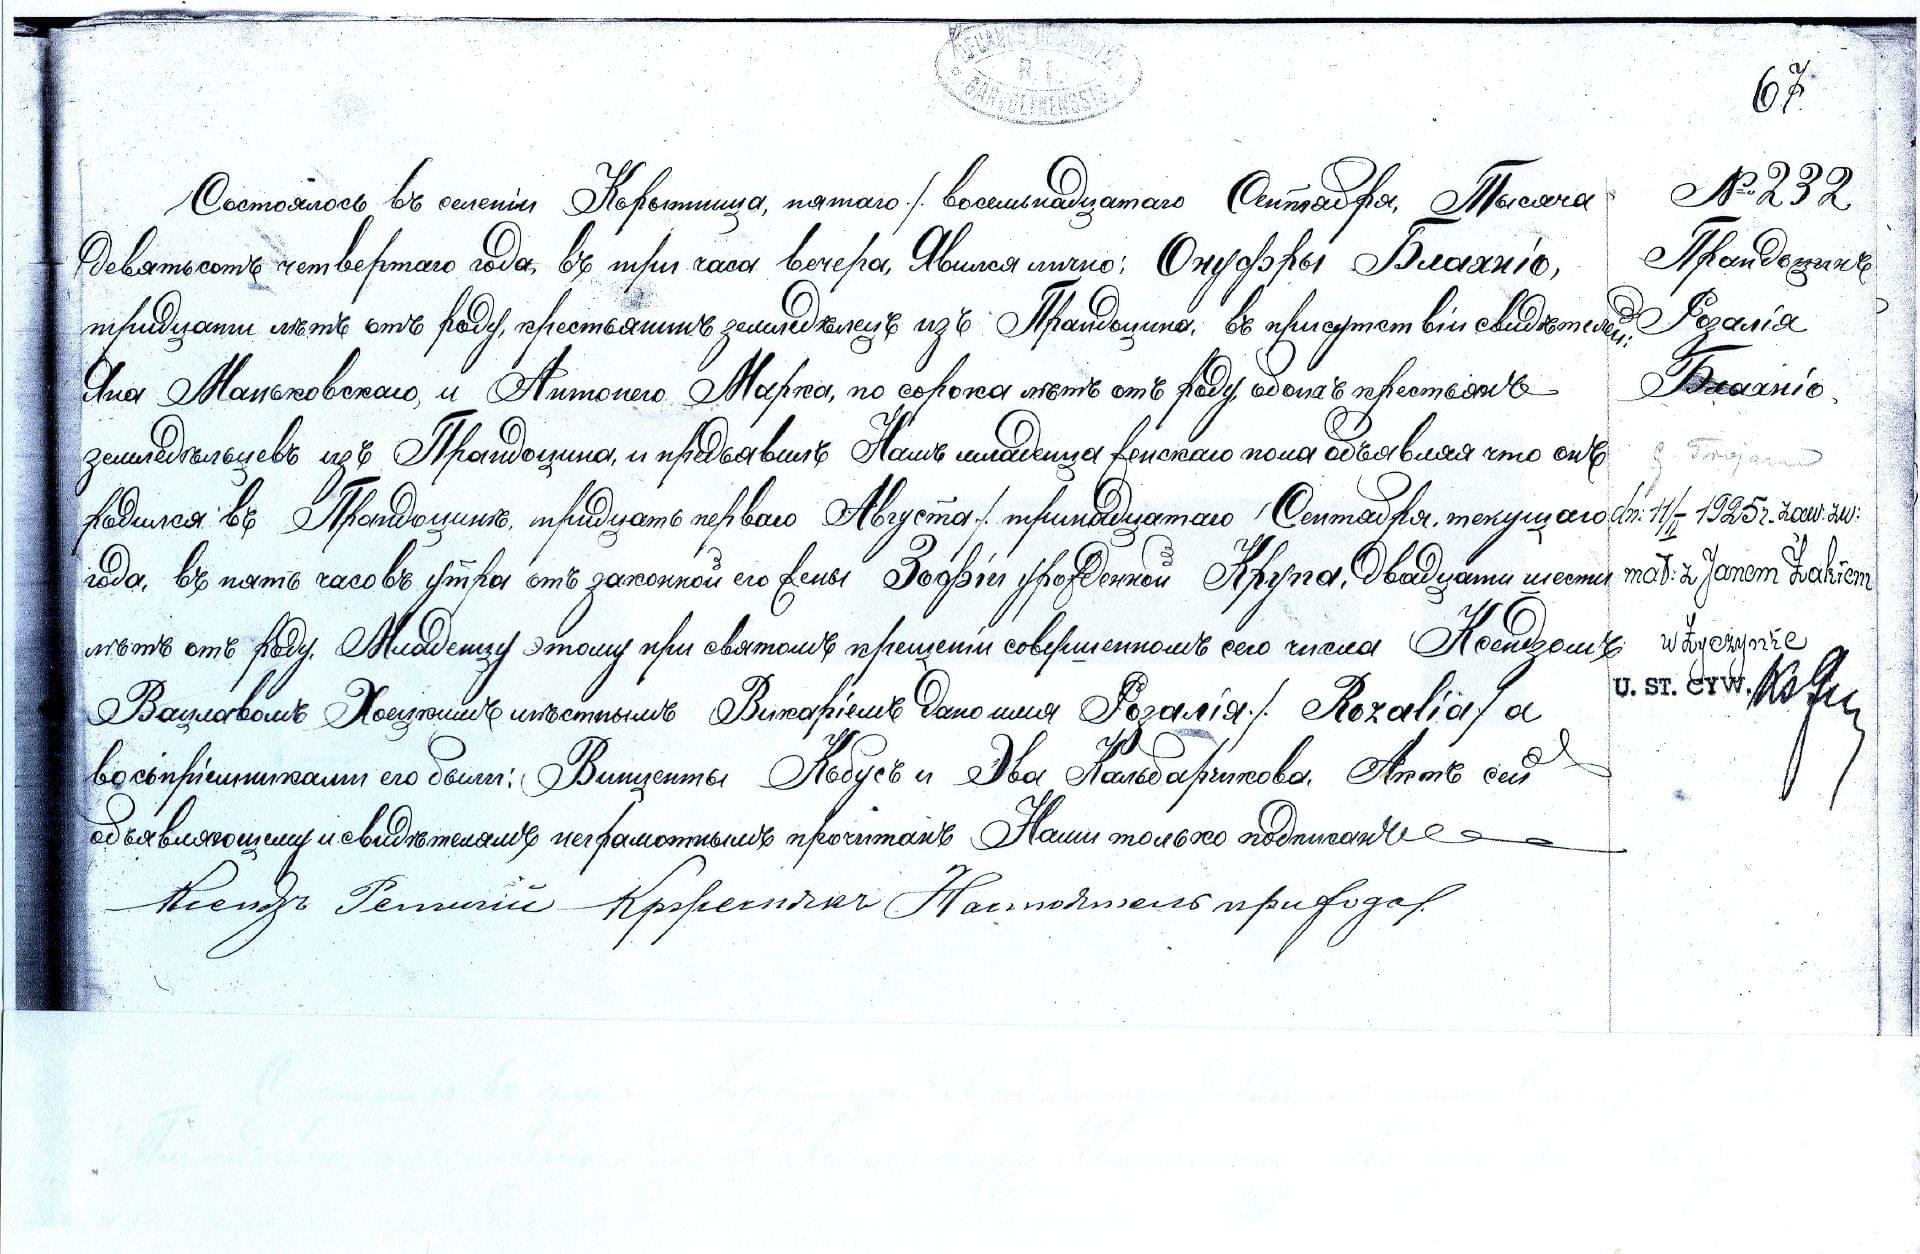 67
Состоялось въ селеніи Корытница, пятаго /. восемьнадцатаго Сентября, Тысяча
девятьсотъ четвертаго года, въ три часа вечера, Явился лично: Онуфры Блахніо,
тридцати лѣтъ отъ роду, крестьянинъ земледѣлецъ изъ Прандоцина, въ присутствіи свидѣтелей:
Яна Маньковскаго, и Антонего Марка, по сорока лѣтъ отъ роду, обоихъ крестьянъ
земледѣльцевъ изъ Прандоцина, и предъявилъ Намъ младенца женскаго пола объявляя что онъ
родился въ Прандоцинѣ, тридцать перваго Августа /. тринадцатаго Сентября, текущаго
года, въ пять часовъ утра отъ законной его жены Зофіи урожденной Крупа, двадцати шести
лѣтъ отъ роду. Младенцу этому при святомъ крещеніи совершенномъ сего числа Ксендзомъ
Вацлавомъ Хоецкимъ мѣстнымъ Викаріемъ дано имя Розалія /. Rozalia / а
воспріемниками его были: Винценты Кобусъ и Эва Кальбарчикова. Актъ сей
объявляющему и свидѣтелямъ неграмотнымъ прочитанъ Нами только подписанъ
Ксендзъ Настоятель прихода /.
№ 232
Прандоцинъ
Розалія
Блахніо.
1925 r. zaw: zw:
mał: z Janem Żakiem
w Życzynie
U. ST. CYW.